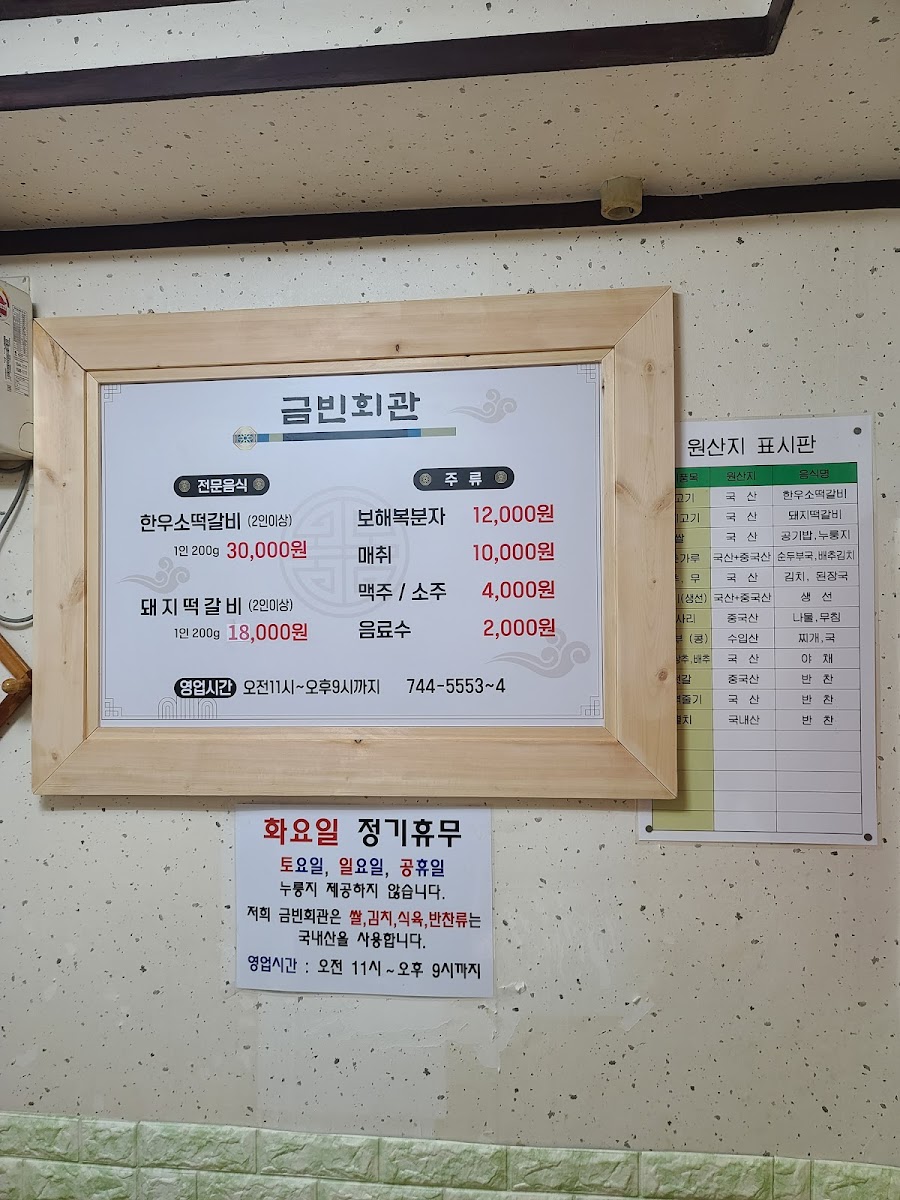 금빈회관
전문음식
한우소떡갈비 (2인이상)
1인 200g 30,000원
돼지떡갈비 (2인이상)
1인 200g 18,000원
주 류
보해복분자 12,000원
매취 10,000원
맥주 / 소주 4,000원
음료수 2,000원
영업시간 오전11시~오후9시까지 744-5553~4
원산지 표시판
품목 원산지 음식명
고기 국 산 한우소떡갈비
고기 국 산 돼지떡갈비
쌀 국 산 공기밥,누룽지
가루 국산+중국산 순두부국,배추김치
무 국 산 김치, 된장국
(생선) 국산+중국산 생 선
사리 중국산 나물,무침
부 (콩) 수입산 찌개,국
상추,배추 국 산 야 채
젓갈 중국산 반 찬
줄기 국 산 반 찬
멸치 국내산 반 찬
화요일 정기휴무
토요일, 일요일, 공휴일
누룽지 제공하지 않습니다.
저희 금빈회관은 쌀,김치,식육,반찬류는
국내산을 사용합니다.
영업시간 : 오전 11시~오후 9시까지